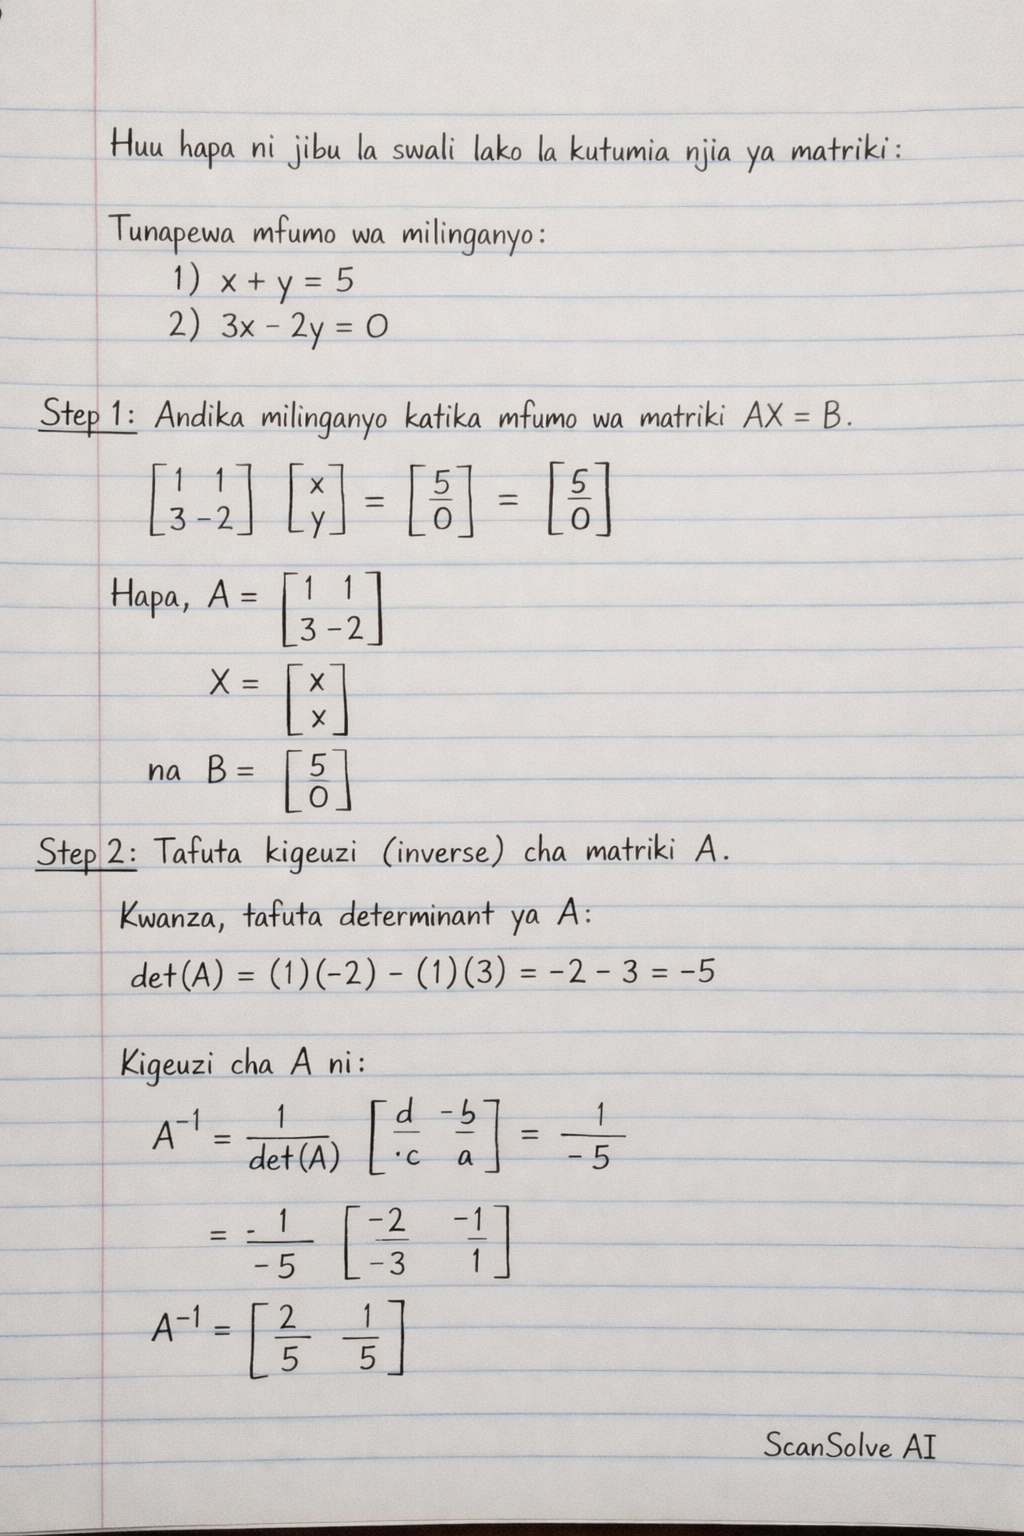 Huu hapa ni jibu la swali lako la kutumia njia ya matriki:
Tunapewa mfumo wa milinganyo:
1) x + y = 5
2) 3x - 2y = 0
Step 1: Andika milinganyo katika mfumo wa matriki AX = B.
[1 1 / 3 -2] [x / y] = [5/0] = [5/0]
Hapa, A = [1 1 / 3 -2]
X = [x / x]
na B = [5/0]
Step 2: Tafuta kigeuzi (inverse) cha matriki A.
Kwanza, tafuta determinant ya A:
det(A) = (1)(-2) - (1)(3) = -2 - 3 = -5
Kigeuzi cha A ni:
A⁻¹ = 1/det(A) [d/·c -b/a] = 1/-5
= -1/-5 [-2/-3 -1/1]
A⁻¹ = [2/5 1/5]
ScanSolve AI